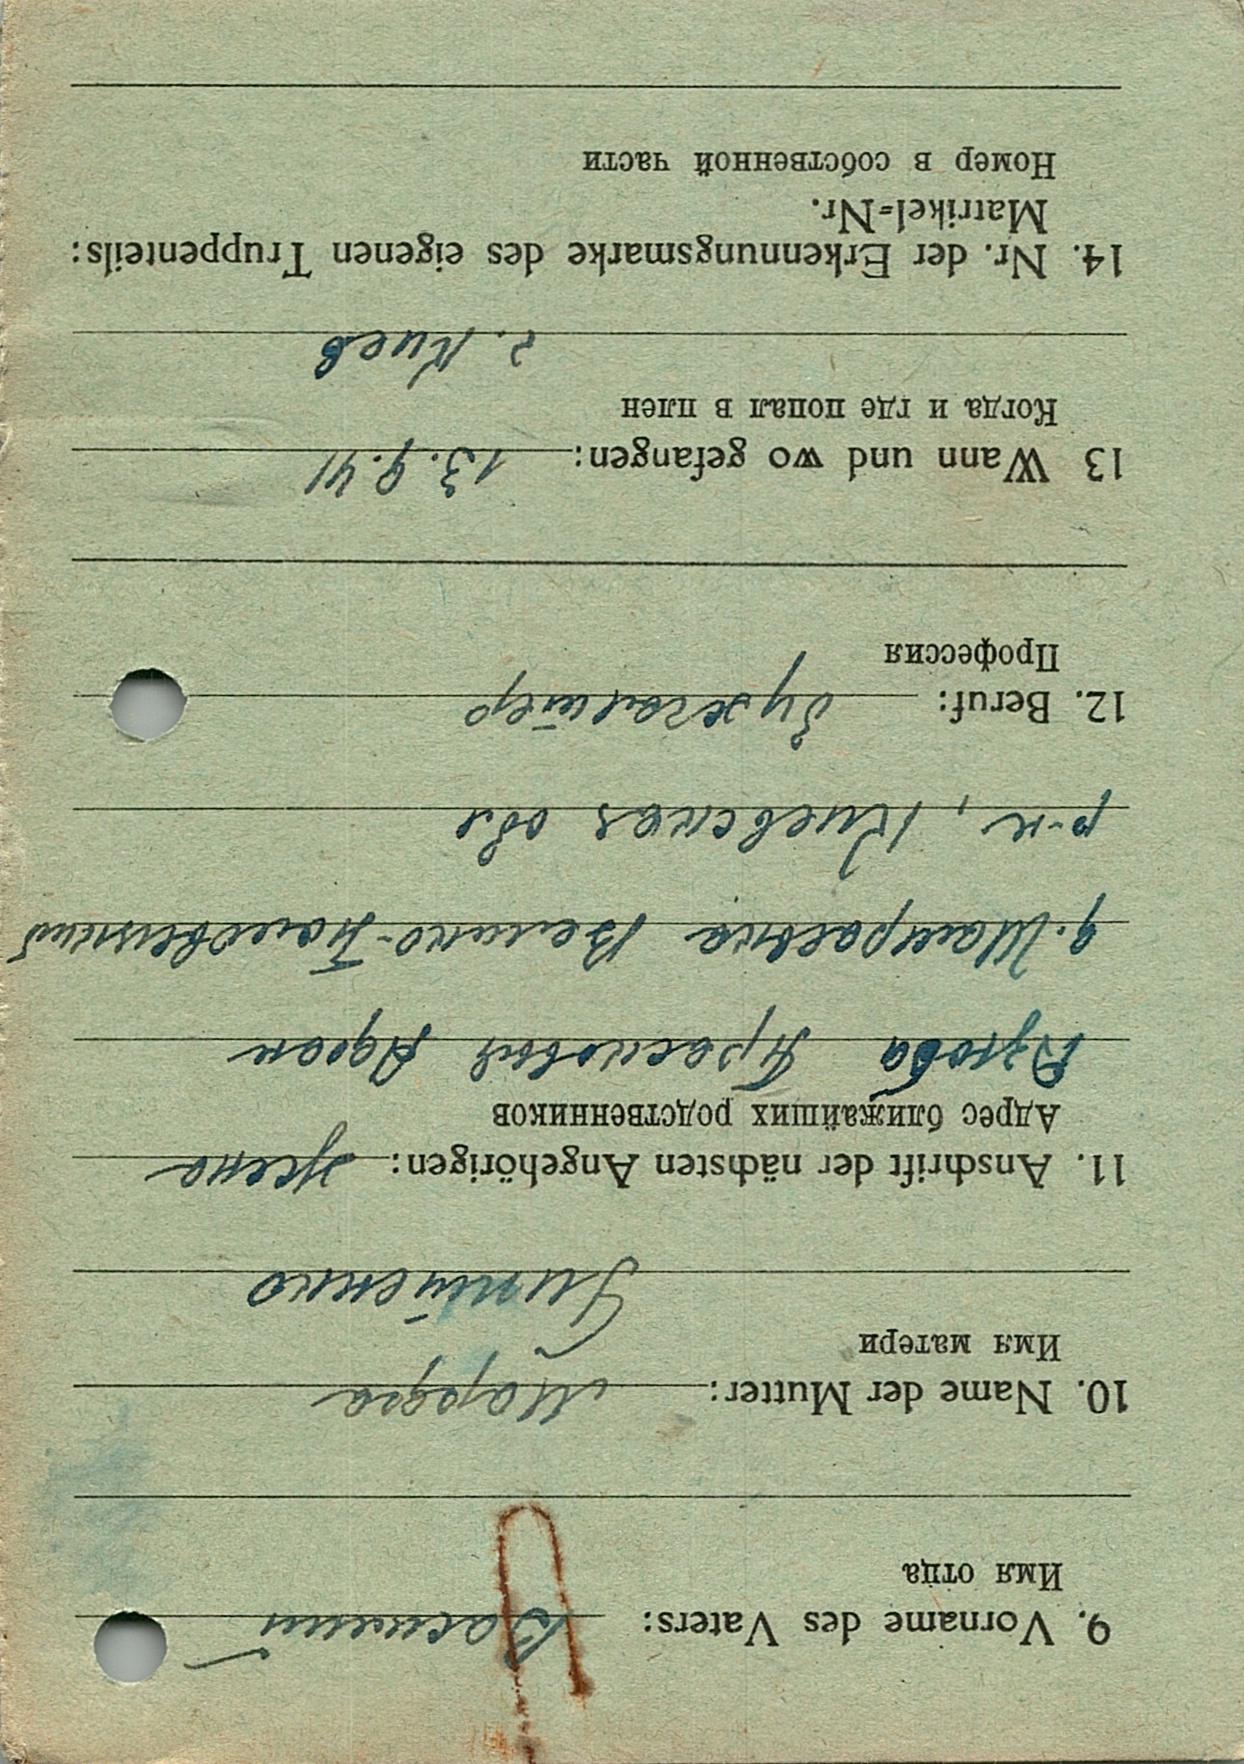 9. Vorname des Vaters: Василий
Имя отца
10. Name der Mutter: Марфа
Имя матери
11. Anschrift der nächsten Angehörigen: жена
Адрес ближайших родственников
р-н, Киевская обл
12. Beruf: бухгалтер
Профессия
13 Wann und wo gefangen: 13.9.41
Когда и где попал в плен
г. Киев
14. Nr. der Erkennungsmarke des eigenen Truppenteils:
Matrikel=Nr.
Номер в собственной части